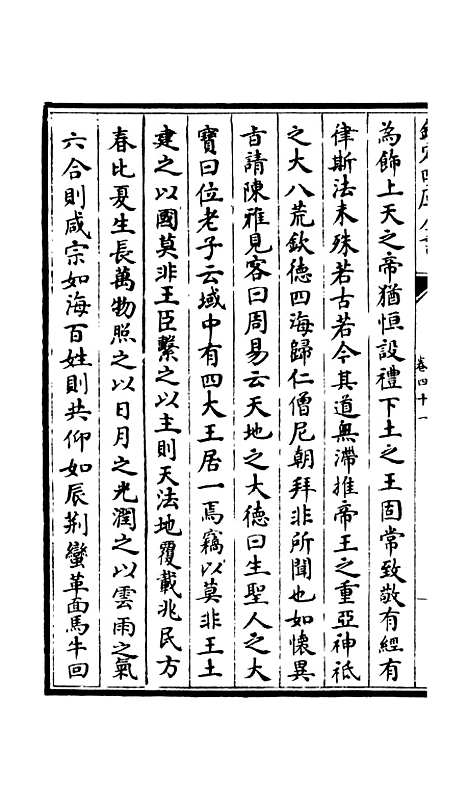 欽定四庫全書
卷四十一
為飾上天之帝猶恒設禮下土之王固常致敬有經有
律斯法未殊若古若今其道無滯推帝王之重亞神祗
之大八荒欽德四海歸仁僧尼朝拜非所聞也如懷異
旨請陳雅見客曰周易云天地之大德曰生聖人之大
寶曰位老子云域中有四大王居一焉竊以莫非王土
建之以國莫非王臣繫之以主則天法地覆載兆民方
春比夏生長萬物照之以日月之光潤之以雲雨之氣
六合則咸宗如海百姓則共仰如辰荆蠻革面馬牛回